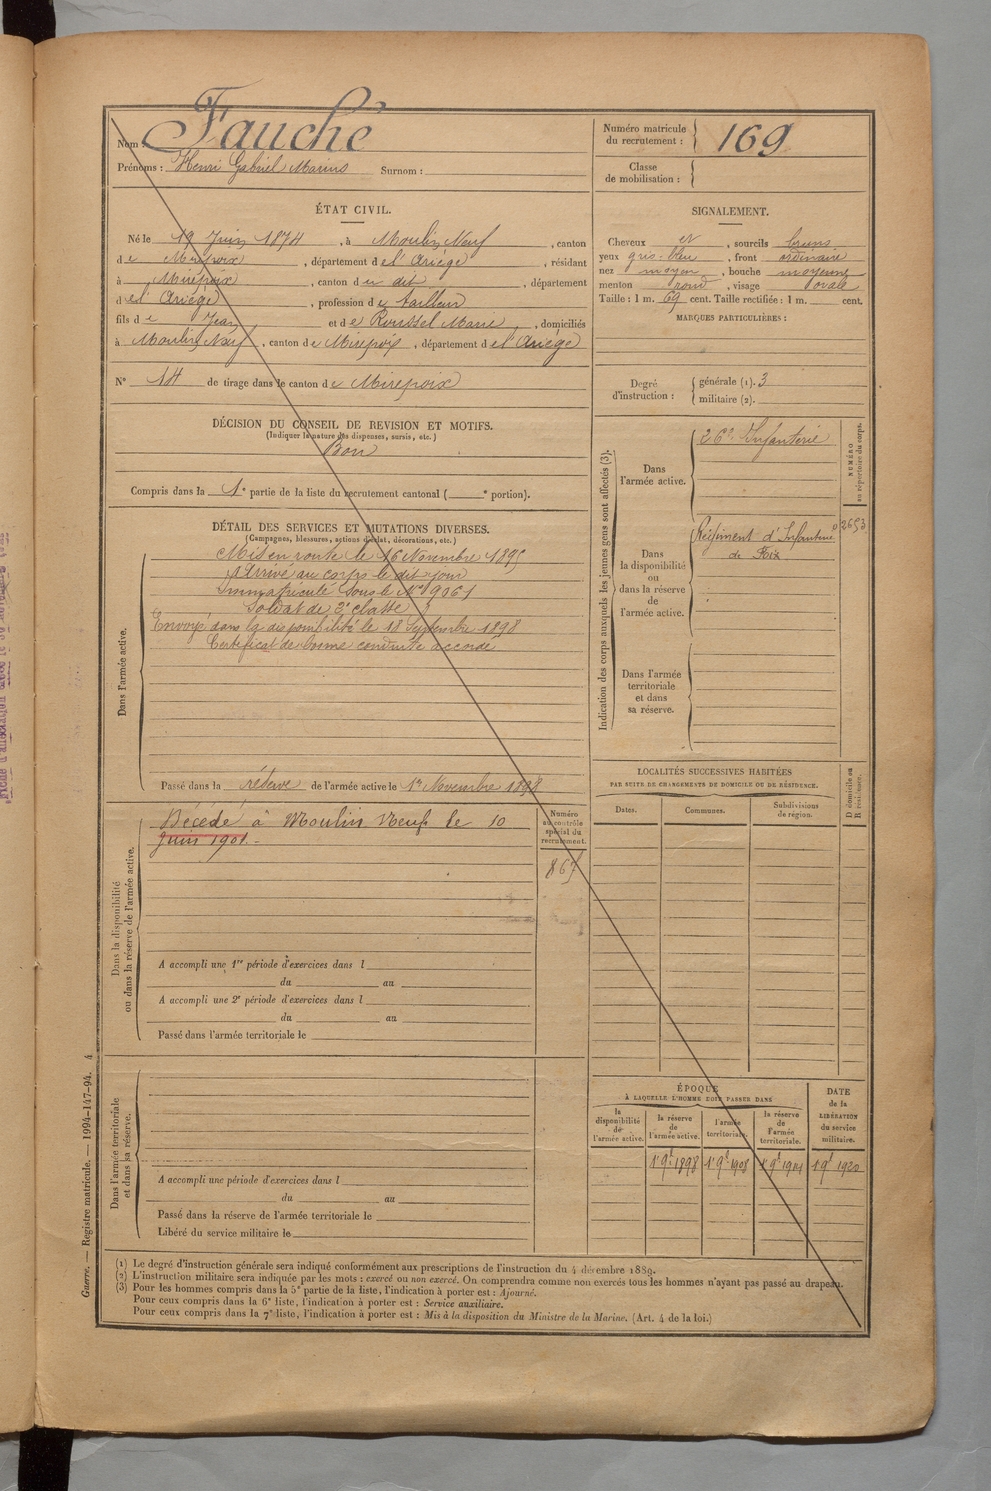 Nom : Fauché
Prénoms : Henri Gabriel Marius Surnom :
Numéro matricule du recrutement : 169
Classe de mobilisation :
ÉTAT CIVIL.
Né le 19 Juin 1874, à Moulin Neuf, canton
de Mirepoix, département de l'Ariège, résidant
à Mirepoix, canton du dit, département
de l'Ariège, profession de tailleur
fils de Jean et de Roussel Marie, domiciliés
à Moulin Neuf, canton de Mirepoix, département de l'Ariège
N° 14 de tirage dans le canton de Mirepoix
SIGNALEMENT.
Cheveux et, sourcils bruns
yeux gris-bleu, front ordinaire
nez moyen, bouche moyenne
menton rond, visage ovale
Taille : 1 m. 69 cent. Taille rectifiée : 1 m. cent.
MARQUES PARTICULIÈRES :
Degré d'instruction : générale (1). 3
militaire (2).
DÉCISION DU CONSEIL DE REVISION ET MOTIFS.
(Indiquer la nature des dispenses, sursis, etc.)
Bon
Compris dans la 1e partie de la liste du recrutement cantonal ( e portion).
DÉTAIL DES SERVICES ET MUTATIONS DIVERSES.
(Campagnes, blessures, actions d'éclat, décorations, etc.)
Dans l'armée active.
Mis en route le 16 Novembre 1895
Arrivé au corps le dit jour
Immatriculé sous le N° 9061
Soldat de 2e classe
Envoyé dans la disponibilité le 18 Septembre 1898
Certificat de bonne conduite accordé
Passé dans la réserve de l'armée active le 1er Novembre 1898
Indication des corps auxquels les jeunes gens sont affectés (3).
NUMÉRO au répertoire du corps.
Dans l'armée active.
26e Infanterie
Dans la disponibilité ou dans la réserve de l'armée active.
Régiment d'Infanterie
de Foix
2653
Dans l'armée territoriale et dans sa réserve.
LOCALITÉS SUCCESSIVES HABITÉES
PAR SUITE DE CHANGEMENTS DE DOMICILE OU DE RÉSIDENCE.
Dates.
Communes.
Subdivisions de région.
D domicile ou R résidence.
Dans la disponibilité ou dans la réserve de l'armée active.
Décédé à Moulin Neuf le 10
Juin 1901.-
Numéro au contrôle spécial du recrutement.
867
A accompli une 1re période d'exercices dans l
du au
A accompli une 2e période d'exercices dans l
du au
Passé dans l'armée territoriale le
Dans l'armée territoriale et dans sa réserve.
A accompli une période d'exercices dans l
du au
Passé dans la réserve de l'armée territoriale le
Libéré du service militaire le
ÉPOQUE
À LAQUELLE L'HOMME DOIT PASSER DANS
la disponibilité de l'armée active.
la réserve de l'armée active.
l'armée territoriale.
la réserve de l'armée territoriale.
DATE de la LIBÉRATION du service militaire.
1er 9bre 1898
1er 9bre 1908
1er 9bre 1914
1er 9bre 1920
(1) Le degré d'instruction générale sera indiqué conformément aux prescriptions de l'instruction du 4 décembre 1889.
(2) L'instruction militaire sera indiquée par les mots : exercé ou non exercé. On comprendra comme non exercés tous les hommes n'ayant pas passé au drapeau.
(3) Pour les hommes compris dans la 5e partie de la liste, l'indication à porter est : Ajourné.
Pour ceux compris dans la 6e liste, l'indication à porter est : Service auxiliaire.
Pour ceux compris dans la 7e liste, l'indication à porter est : Mis à la disposition du Ministre de la Marine. (Art. 4 de la loi.)
Guerre. — Registre matricule. — 1994-147-94. 4